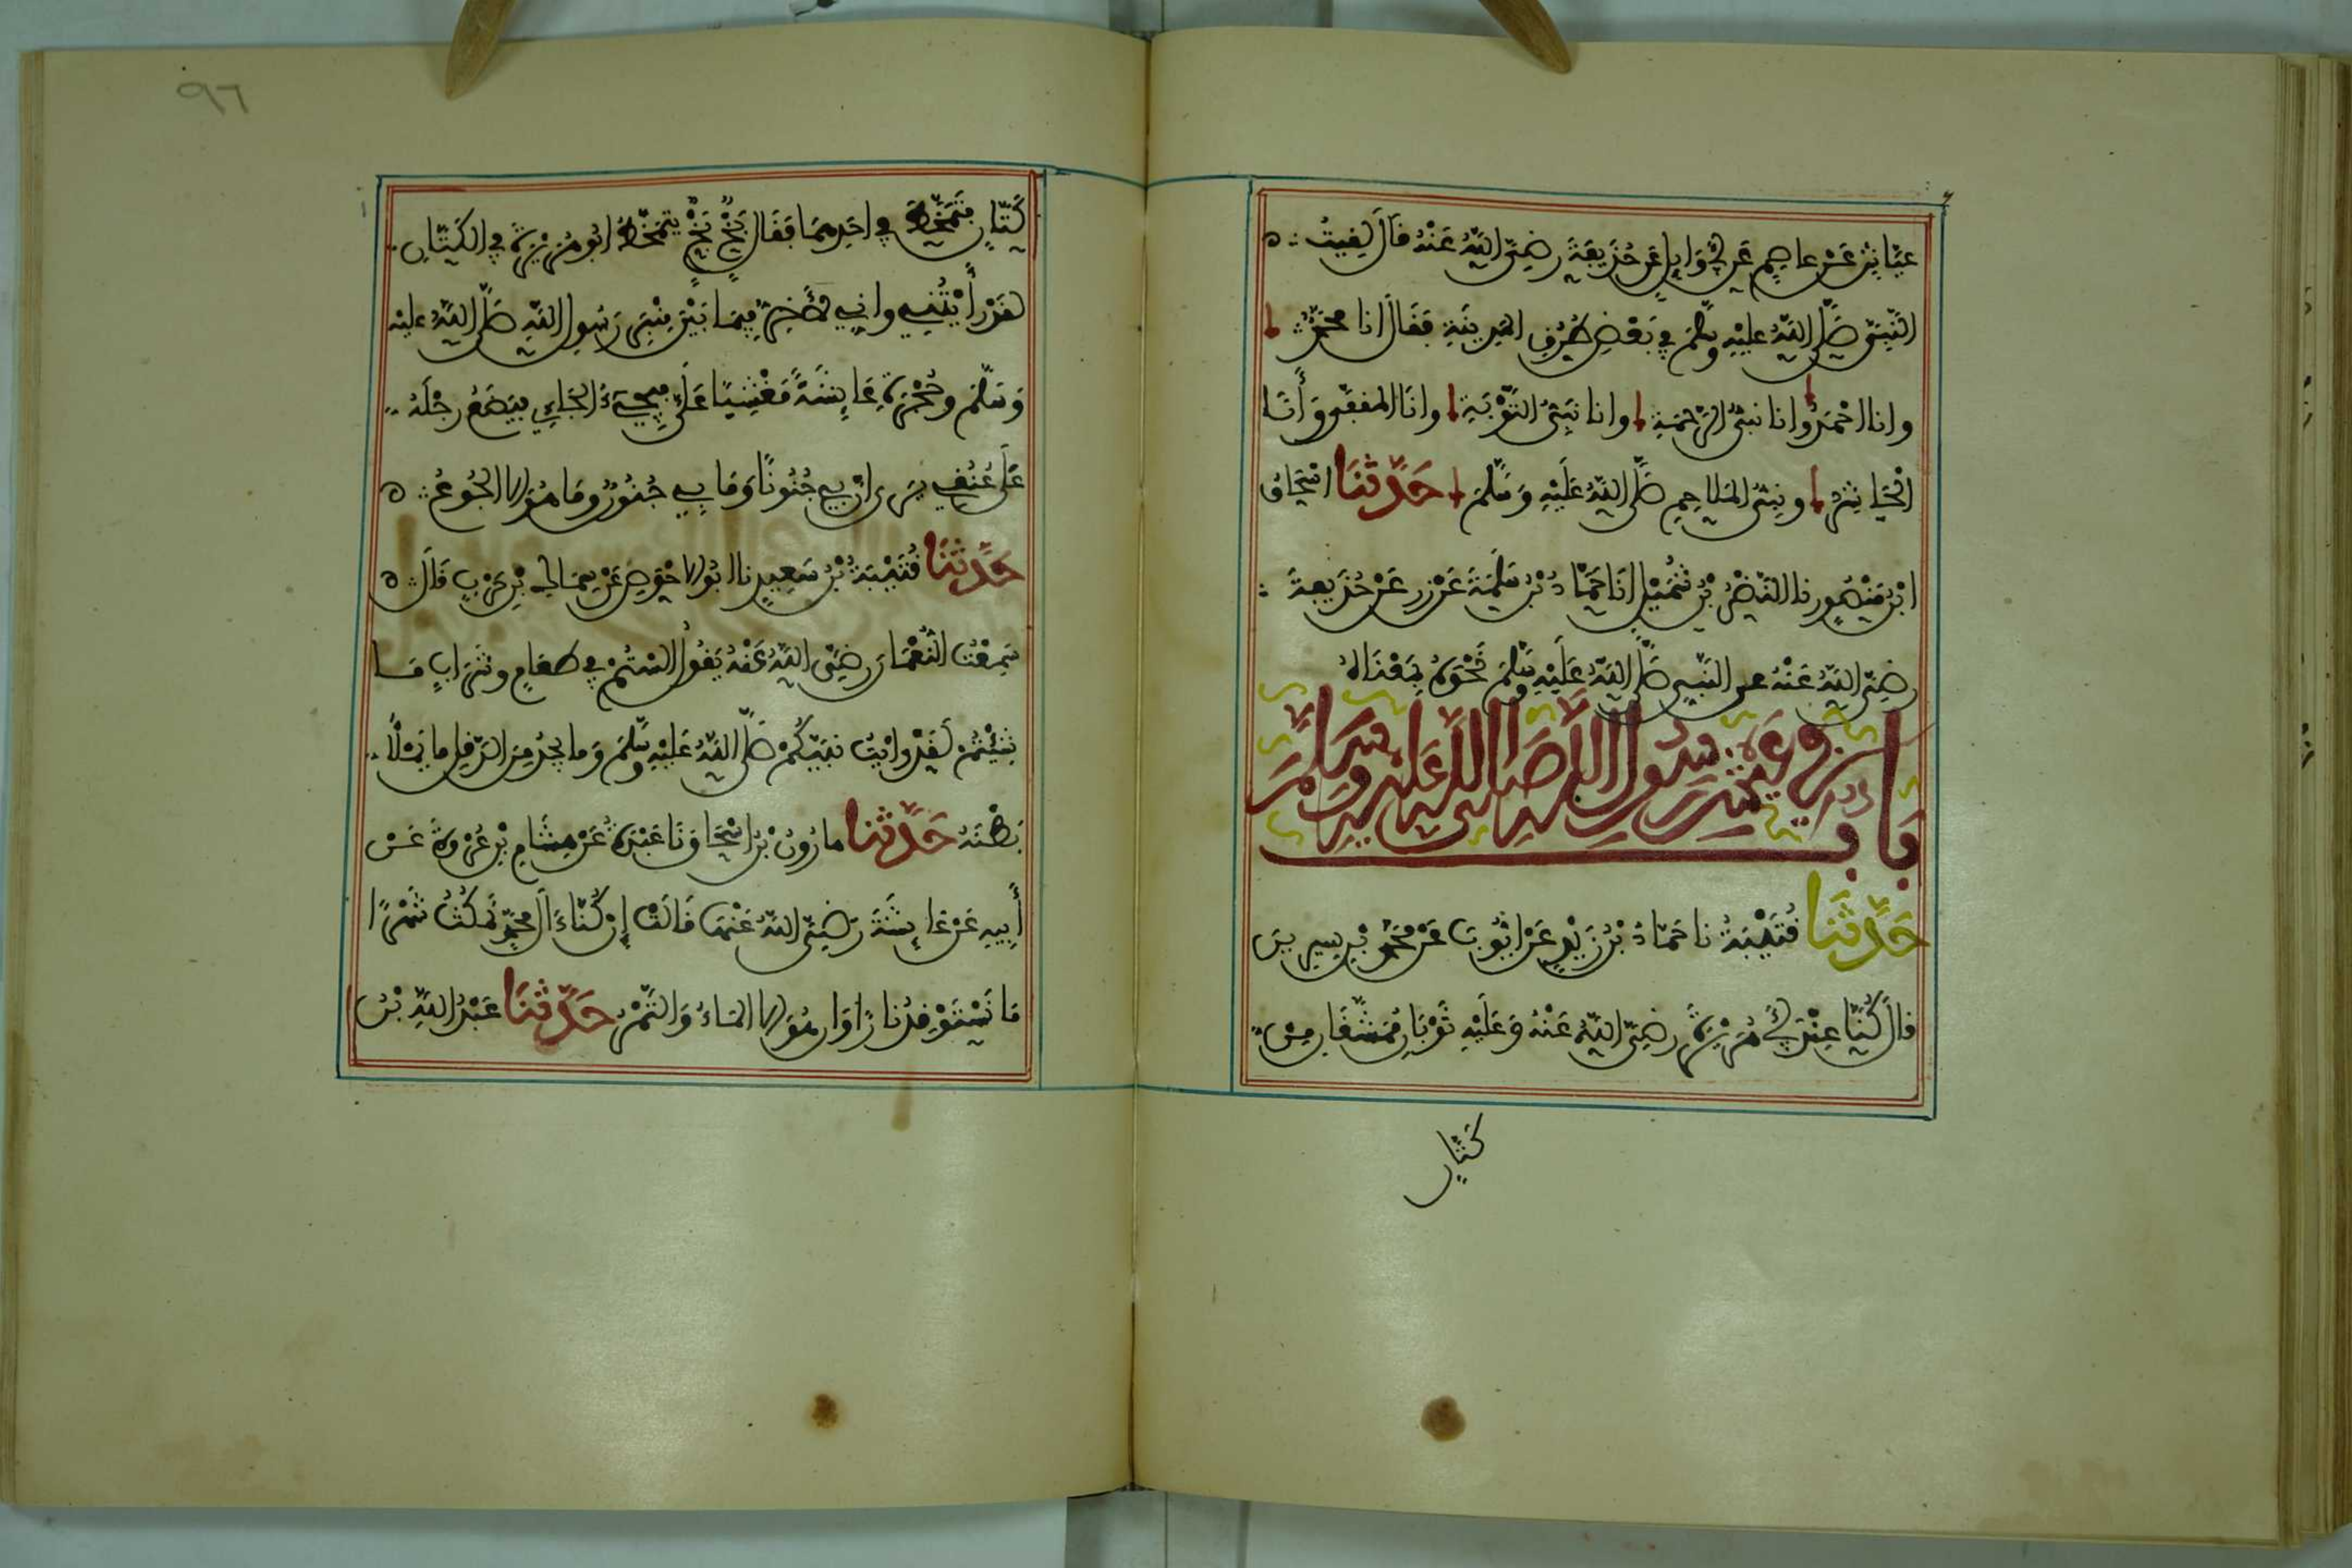 عَيَّاشٍ عَنْ عاصِمٍ عَن أَبِي وَايِلٍ عَن حُذَيْفَةَ رَضِيَ اللَّهُ عَنْهُ قَالَ لَقِيتُ
النَّبِيَّ صَلَّى اللَّهُ عَلَيْهِ وَسَلَّمَ فِي بَعْضِ طُرُقِ الْمَدِينَةِ فَقَالَ انا مُحَمَّدٌ
وانا احْمَدُ وانا نَبِيُّ الرَّحْمَةِ وانا نَبِيُّ التَّوْبَةِ وانَا المُقَفَّى وَأَنَا
الْحَاشِرُ ونَبِيُّ المَلَاحِمِ صَلَّى اللَّهُ عَلَيْهِ وَسَلَّمَ حَدَّثَنَا اسْحَاقُ
ابْنُ مَنْصُورٍ نا النَّضْرُ بْنُ شُمَيْلٍ انَا حَمَّادُ بْنُ سَلَمَةَ عَنْ زر عَنْ حُذَيْفَةَ
رَضِيَ اللَّهُ عَنْهُ عن النَّبِيِّ صَلَّى اللَّهُ عَلَيْهِ وَسَلَّمَ نَحْوَهُ بِمَعْنَاهُ
بَابٌ فِي عَيْشِ رَسُولِ اللَّهِ صَلَّى اللَّهُ عَلَيْهِ وَسَلَّمَ
حَدَّثَنَا قُتَيْبَةُ نا حَمَّادُ بْنُ زَيْدٍ عَنْ ايُّوبَ عَنْ مُحَمَّدِ بْنِ سِيرِينَ
قالَ كُنَّا عِنْدَ أَبِي هُرَيْرَةَ رَضِيَ اللَّهُ عَنْهُ وَعَلَيْهِ ثَوْبَانِ مُمَشَّقَانِ مِنْ
كَتَّانٍ
٩٦
كَتَّانٍ فَتَمَخَّطَ فِي احَدِهِمَا فَقَالَ بَخٍّ بَخٍّ يَتَمَخَّطُ ابُو هُرَيْرَةَ فِي الكَتَّانِ
لَقَدْ رَأَيْتُنِي وانِّي لَأَخِرُّ فِيمَا بَيْنَ مِنْبَرِ رَسُولِ اللَّهِ صَلَّى اللَّهُ عَلَيْهِ
وَسَلَّمَ وحُجْرَةِ عَايِشَةَ مَغْشِيًّا عَلَيَّ فَيَجِيءُ الجَاءِي فَيَضَعُ رِجْلَهُ
عَلَى عُنُقِي يَرَى انَّ بِي جُنُونًا وَمَا بِي جُنُونٌ وَمَا هُوَ الا الجُوعُ
حَدَّثَنَا قُتَيْبَةُ بْنُ سَعِيدٍ نا ابُو الاحْوَصِ عَنْ سِمَاكِ بْنِ حَرْبٍ قَالَ
سَمِعْتُ النُّعْمَانَ رَضِيَ اللَّهُ عَنْهُ يَقُولُ أَلَسْتُمْ فِي طَعَامٍ وشَرَابٍ مَا
شِئْتُمْ لَقَدْ رَأَيْتُ نَبِيَّكُمْ صَلَّى اللَّهُ عَلَيْهِ وَسَلَّمَ وَما يَجِدُ مِنَ الدَّقَلِ ما يَمْلَأُ
بَطْنَهُ حَدَّثَنا هَارُونُ بْنُ اسْحَاقَ نَا عَبْدَةُ عَنْ هِشَامِ بْنِ عُرْوَةَ عَنْ
أَبِيهِ عَنْ عَايِشَةَ رَضِيَ اللَّهُ عَنْهَا قَالَتْ إِنْ كُنَّا ءَالَ مُحَمَّدٍ نَمْكُثُ شَهْرًا
مَا نَسْتَوْقِدُ نَارًا وَانْ هُوَ الا المَاءُ وَالتَّمْرُ حَدَّثَنَا عَبْدُ اللَّهِ بْنُ